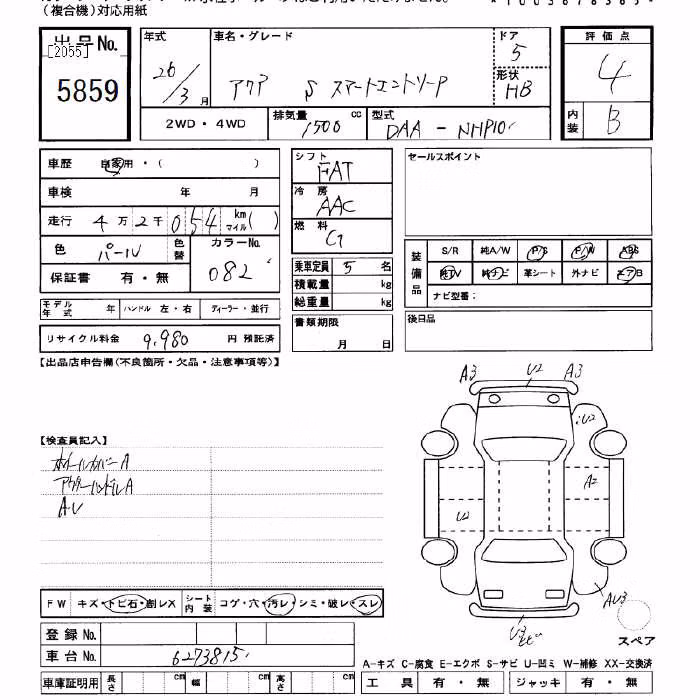 （複合機）対応用紙
出品No.
[2055]
5859
年式
26/3月
車名・グレード
アクア S スマートエントリーP
ドア
5
形状
HB
評価点
4
内装
B
2WD・4WD
排気量
1500cc
型式
DAA-NHP10
車歴 自家用・( )
車検 年 月
走行 4万2千054 km マイル( )
色 パール 色替
カラーNo.
082
保証書 有・無
モデル年式 年 ハンドル 左・右 ディーラー・並行
リサイクル料金 9,980 円 預託済
シフト
FAT
冷房
AAC
燃料
G
乗車定員 5 名
積載量 kg
総重量 kg
書類期限
月 日
セールスポイント
装備品
S/R 純A/W P/S P/W ABS
純TV 純ナビ 革シート 外ナビ エアB
ナビ型番：
後日品
【出品店申告欄(不良箇所・欠品・注意事項等)】
【検査員記入】
ホイールカバーA
アウターハンドルA
A・U
A3 U2 A3
U2
A2
U2
AU3
U3
スペア
FW キズ・トビ石・割レX シート内装 コゲ・穴・汚レ・シミ・破レ・スレ
登録No.
車台No. 6273815
車庫証明用 長さ cm 幅 cm 高さ cm
A-キズ C-腐食 E-エクボ S-サビ U-凹ミ W-補修 XX-交換済
工具 有・無 ジャッキ 有・無